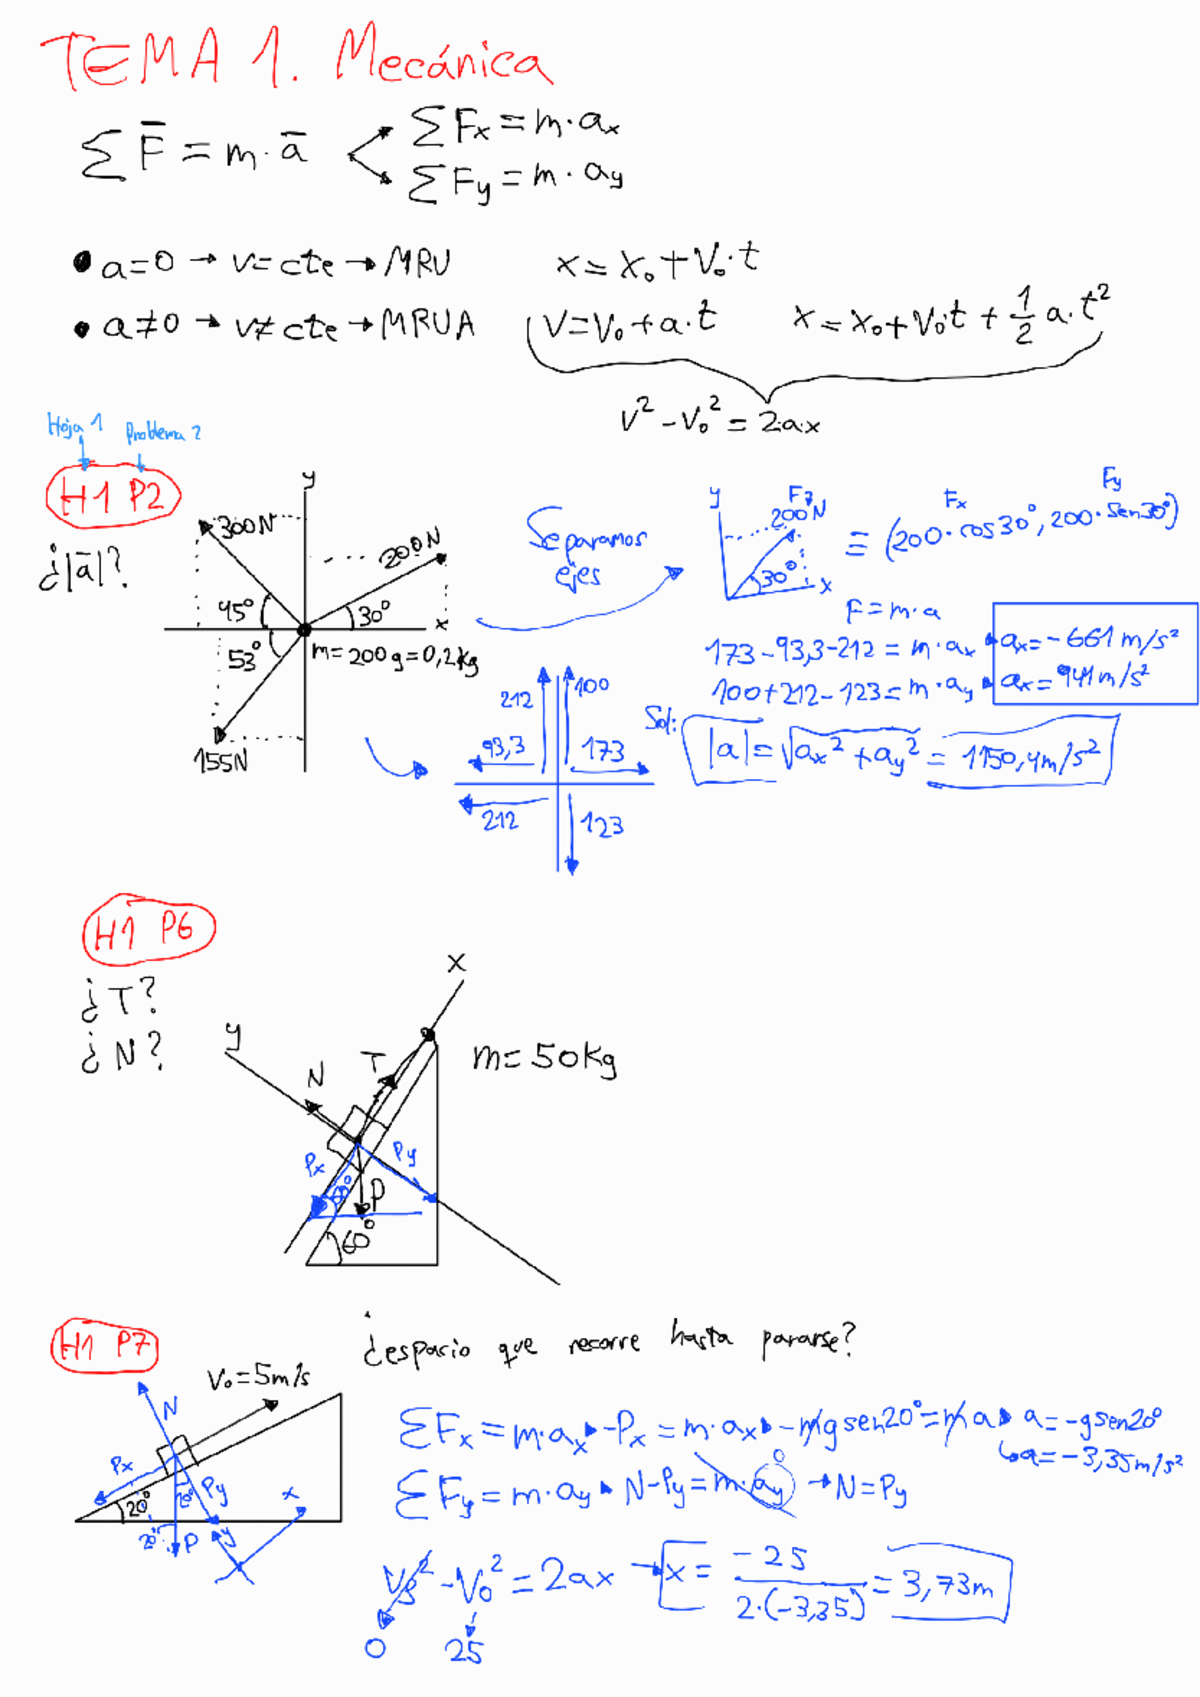 TEMA 1. Mecánica
∑F̅ = m·a̅
∑Fx = m·ax
∑Fy = m·ay
• a=0 → v=cte → MRU x = x₀+v₀·t
• a≠0 → v≠cte → MRUA v=v₀+a·t x=x₀+v₀t + 1/2 a·t²
v² - v₀² = 2ax
Hoja 1 Problema 2
H1 P2
¿|a̅|?
y
300N
200N
45°
30°
x
53°
m=200g=0,2kg
155N
Separamos
ejes
y
F7
200N
30°
x
Fx Fy
= (200·cos30°, 200·sen30°)
F=m·a
173-93,3-212 = m·ax → ax=-661 m/s²
100+212-123=m·ay → ax= 941 m/s²
Sol: |a|=√ax²+ay² = 1150,4m/s²
212
100
93,3
173
212
123
H1 P6
¿T?
¿N?
x
y
N
T
m=50kg
Px
Py
P
60°
H1 P7
¿espacio que recorre hasta pararse?
V₀=5m/s
N
Px
20°
20°
Py
x
20°
P
y
∑Fx = m·ax → -Px = m·ax → -mgsen20°=m·a → a=-gsen20°
↳a=-3,35m/s²
∑Fy = m·ay → N-Py=m·ay 0 → N=Py
-V₀² = 2ax → x = -25 / 2·(-3,35) = 3,73m
0 25